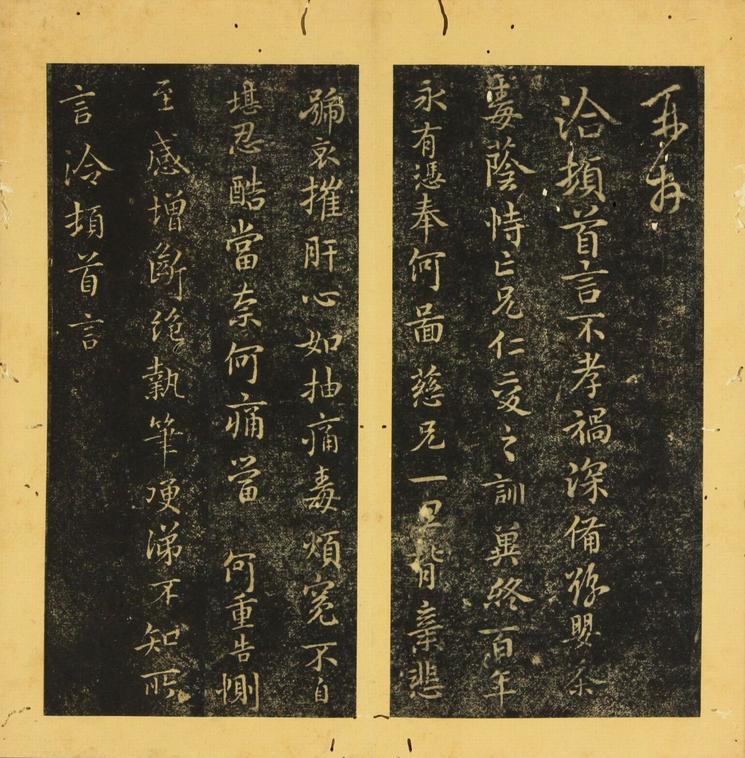 再拜
洽頓首言不孝禍深備豫嬰荼
毒蔭恃亡兄仁愛之訓冀終百年
永有憑奉何圖慈兄一旦背棄悲
號哀摧肝心如抽痛毒煩冤不自
堪忍酷當奈何痛當 何重告惻
至感增斷絕執筆哽涕不知所
言洽頓首言